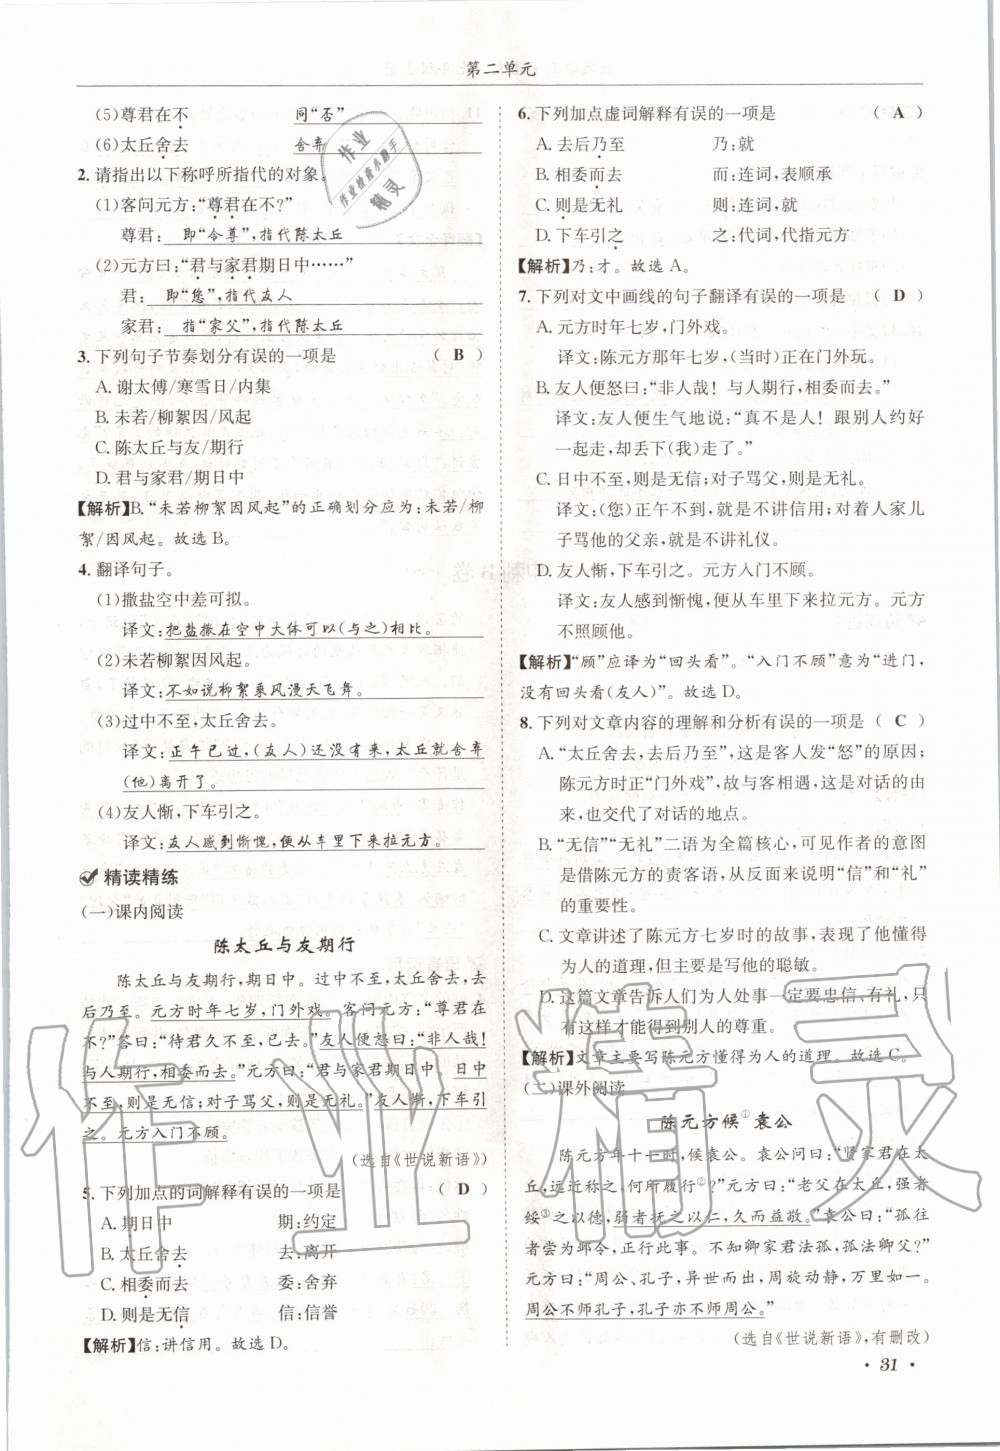 第二单元
(5)尊君在不 同“否”
(6)太丘舍去 舍弃
2. 请指出以下称呼所指代的对象。
(1)客问元方:“尊君在不?”
尊君: 即“令尊”,指代陈太丘
(2)元方曰:“君与家君期日中……”
君: 即“您”,指代友人
家君: 指“家父”,指代陈太丘
3. 下列句子节奏划分有误的一项是 ( B )
A. 谢太傅/寒雪日/内集
B. 未若/柳絮因/风起
C. 陈太丘与友/期行
D. 君与家君/期日中
【解析】B.“未若柳絮因风起”的正确划分应为:未若/柳
絮/因风起。故选 B。
4. 翻译句子。
(1)撒盐空中差可拟。
译文:把盐撒在空中大体可以(与之)相比。
(2)未若柳絮因风起。
译文:不如说柳絮乘风漫天飞舞。
(3)过中不至,太丘舍去。
译文:正午已过,(友人)还没有来,太丘就舍弃
(他)离开了。
(4)友人惭,下车引之。
译文:友人感到惭愧,便从车里下来拉元方。
精读精练
(一)课内阅读
陈太丘与友期行
陈太丘与友期行,期日中。过中不至,太丘舍去,去
后乃至。元方时年七岁,门外戏。客问元方:“尊君在
不?”答曰:“待君久不至,已去。”友人便怒曰:“非人哉!
与人期行,相委而去。”元方曰:“君与家君期日中。日中
不至,则是无信;对子骂父,则是无礼。”友人惭,下车引
之。元方入门不顾。
(选自《世说新语》)
5. 下列加点的词解释有误的一项是 ( D )
A. 期日中 期:约定
B. 太丘舍去 去:离开
C. 相委而去 委:舍弃
D. 则是无信 信:信誉
【解析】信:讲信用。故选 D。
6. 下列加点虚词解释有误的一项是 ( A )
A. 去后乃至 乃:就
B. 相委而去 而:连词,表顺承
C. 则是无礼 则:连词,就
D. 下车引之 之:代词,代指元方
【解析】乃:才。故选 A。
7. 下列对文中画线的句子翻译有误的一项是 ( D )
A. 元方时年七岁,门外戏。
译文:陈元方那年七岁,(当时)正在门外玩。
B. 友人便怒曰:“非人哉! 与人期行,相委而去。”
译文:友人便生气地说:“真不是人! 跟别人约好
一起走,却丢下(我)走了。”
C. 日中不至,则是无信;对子骂父,则是无礼。
译文:(您)正午不到,就是不讲信用;对着人家儿
子骂他的父亲,就是不讲礼仪。
D. 友人惭,下车引之。元方入门不顾。
译文:友人感到惭愧,便从车里下来拉元方。元方
不照顾他。
【解析】“顾”应译为“回头看”。“入门不顾”意为“进门,
没有回头看(友人)”。故选 D。
8. 下列对文章内容的理解和分析有误的一项是 ( C )
A. “太丘舍去,去后乃至”,这是客人发“怒”的原因;
陈元方时正“门外戏”,故与客相遇,这是对话的由
来,也交代了对话的地点。
B. “无信”“无礼”二语为全篇核心,可见作者的意图
是借陈元方的责客语,从反面来说明“信”和“礼”
的重要性。
C. 文章讲述了陈元方七岁时的故事,表现了他懂得
为人的道理,但主要是写他的聪敏。
D. 这篇文章告诉人们为人处事一定要忠信、有礼,只
有这样才能得到别人的尊重。
【解析】文章主要写陈元方懂得为人的道理。故选 C。
(二)课外阅读
陈元方候①袁公
陈元方年十一时,候袁公。袁公问曰:“贤家君在太
丘,远近称之,何所履行②?”元方曰:“老父在太丘,强者
绥③之以德,弱者抚之以仁,久而益敬。”袁公曰:“孤往
者尝为邺令,正行此事。不知卿家君法孤,孤法卿父?”
元方曰:“周公、孔子,异世而出,周旋动静,万里如一。
周公不师孔子,孔子亦不师周公。”
(选自《世说新语》,有删改)
· 31 ·
作业
作业检查小助手
精灵
作业精灵